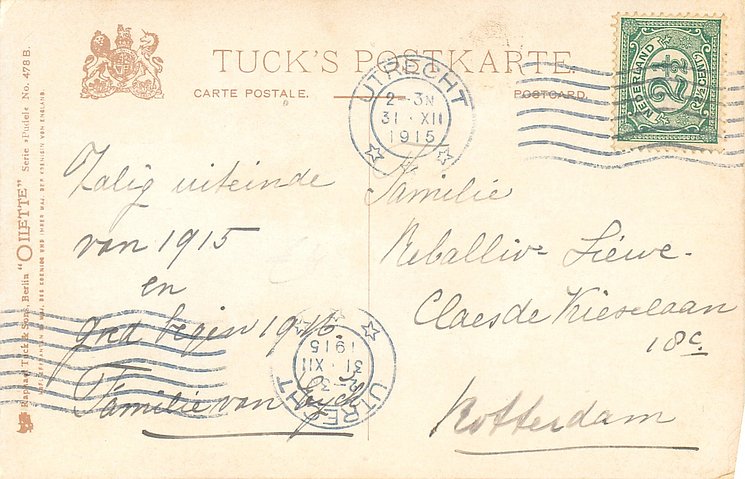 TUCK'S POSTKARTE.
CARTE POSTALE.
POSTCARD.
UTRECHT
2-3N
31·XII
1915
NEDERLAND
2½
CENT
Raphael Tuck & Sons, Berlin "OILETTE" Serie „Pudel“ No. 478 B.
Zalig uiteinde
van 1915
en
goed begin 1916.
Familie van
Familie
Claes de Vrieselaan
18c.
Rotterdam
UTRECHT
31·XII
1915